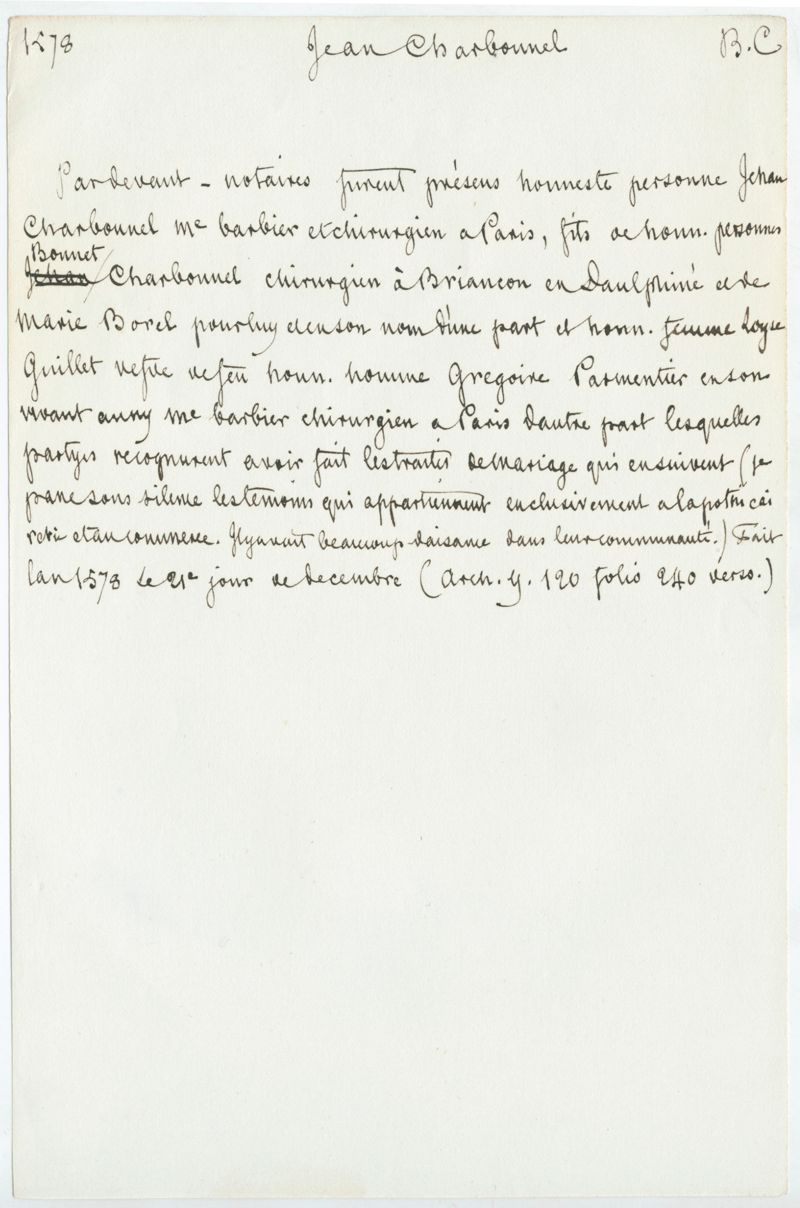 1578 Jean Charbonnel B.C
Pardevant - notaires furent présens honneste personne Jehan
Charbonnel me barbier et chirurgien a Paris, fils de honn. personnes
Bonnet
Jehan Charbonnel chirurgien à Briancon en Daulphiné et de
Marie Borel pour luy et en son nom d'une part et honn. femme Loyse
Guillet vefve de feu honn. homme Gregoire Parmentier en son
vivant aussy me barbier chirurgien a Paris dautre part lesquelles
partyes recognurent avoir fait les traités de mariage qui ensuivent (je
passe sous silence les temoins qui appartiennent exclusivement a la pothicai
rerie et au commerce. Il y avait beaucoup d'aisance dans leur communauté.) Fait
lan 1578 le 21e jour de decembre (Arch. Y. 120 folio 240 verso.)